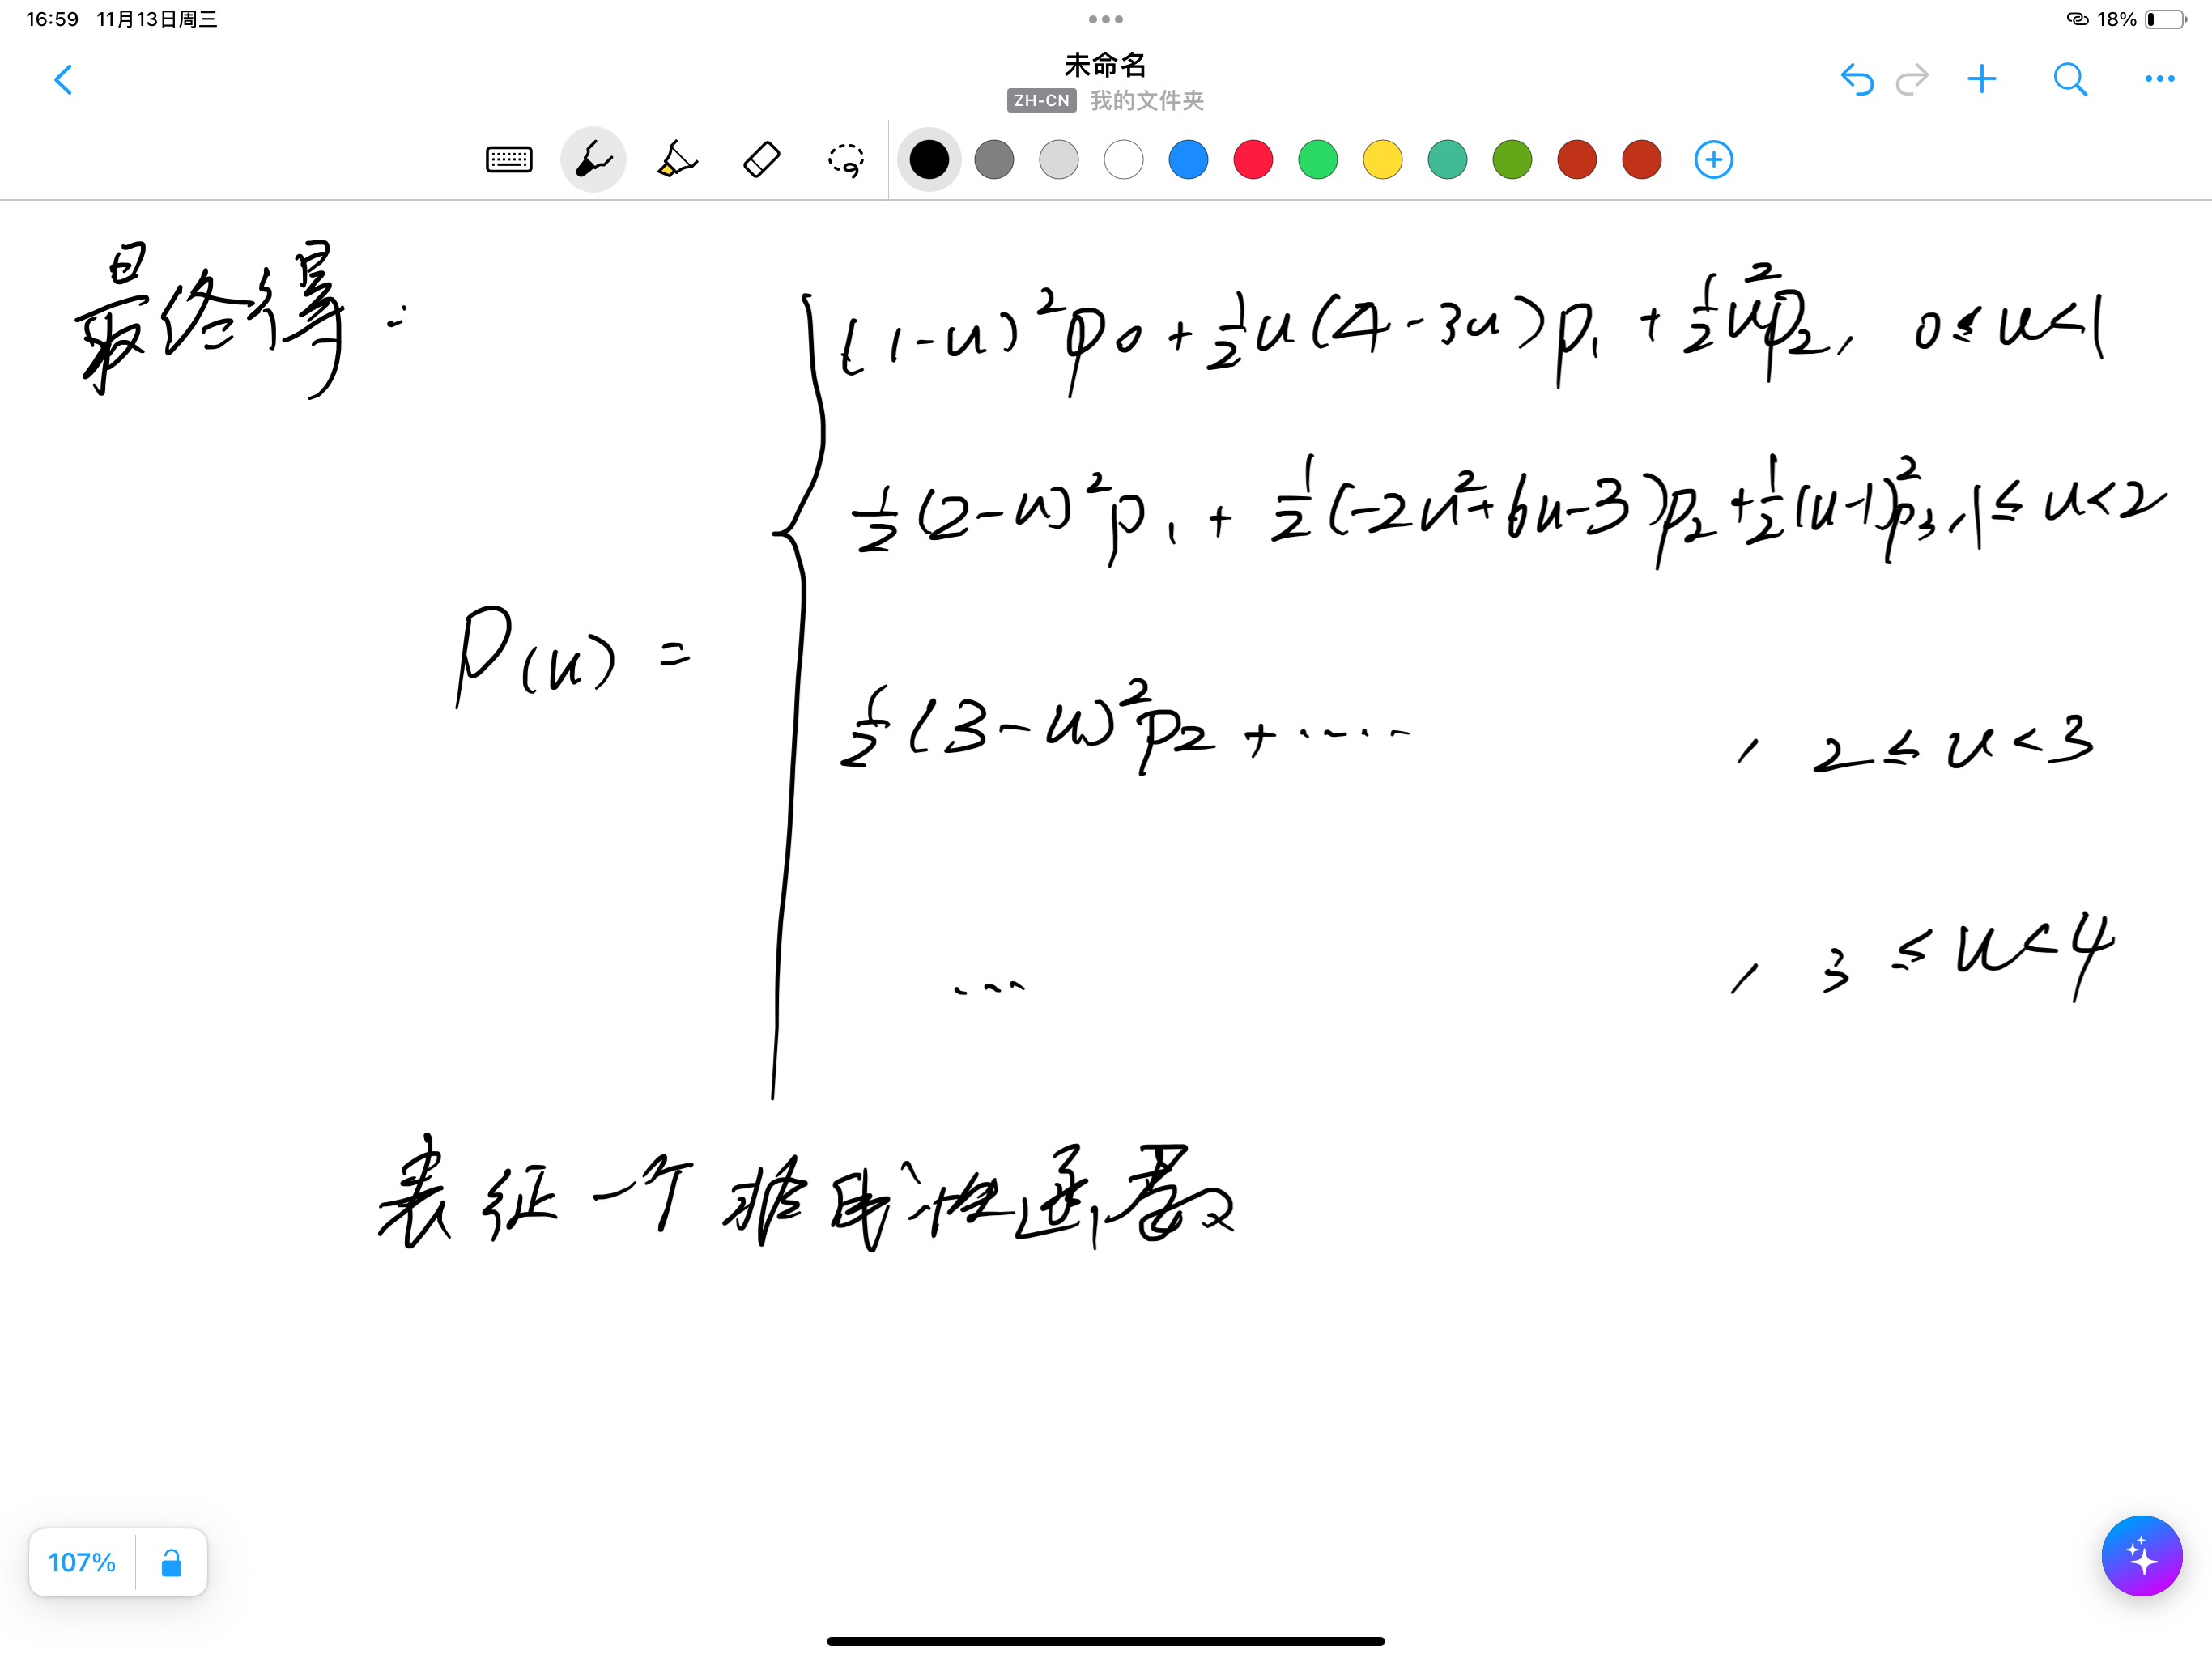 16:59 11月13日周三 18%
未命名
ZH-CN 我的文件夹
最终得:
(1-u)²p₀ + ½u(4-3u)p₁ + ½u²p₂, 0≤u<1
½(2-u)²p₁ + ½(-2u²+6u-3)p₂ + ½(u-1)²p₃, 1≤u<2
P(u) = {
½(3-u)²p₂ + ..... , 2≤u<3
... , 3≤u<4
表征一个非线性
107%